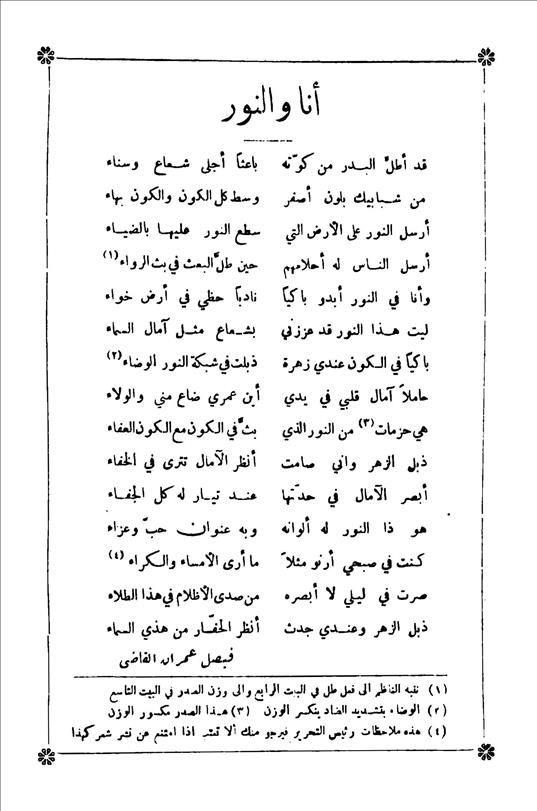 أنا والنور
قد أطلّ البدر من كوّته باعثاً أجلى شعاع وسناء
من شبابيك بلون أصفر وسط كل الكون والكون بهاء
أرسل النور على الأرض التي سطع النور عليها بالضياء
أرسل الناس له أحلامهم حين طلَّ البعث في بث الرواء (١)
وأنا في النور أبدو باكياً نادباً حظي في أرض خواء
ليت هذا النور قد عززني بشعاع مثل آمال السماء
باكياً في الكون عندي زهرة ذبلت في شبكة النور الوضاء (٢)
حاملاً آمال قلبي في يدي أين عمري ضاع مني والولاء
هي حزمات (٣) من النور الذي بثَّ في الكون مع الكون العفاء
ذبل الزهر واني صامت أنظر الآمال تترى في الخفاء
أبصر الآمال في حدتها عند تيار له كل الجفاء
هو ذا النور له ألوانه وبه عنوان حبّ وعزاء
كنت في صبحي أرنو مثلاً ما أرى الأمساء والكراء (٤)
صرت في ليلي لا أبصره من صدى الأظلام في هذا الطلاء
ذبل الزهر وعندي جدث أنظر الحفّار من هذي السماء
فيصل عمران القاضي
(١) نبيه الناظر الى فعل طل في البيت الرابع والى وزن الصدر في البيت التاسع
(٢) الوضاء بتشديد الضاد ينكسر الوزن (٣) هذا الصدر مكسور الوزن
(٤) هذه ملاحظات رئيس التحرير فيرجو منك ألا تعتب اذا امتنع عن نشر شعر كهذا